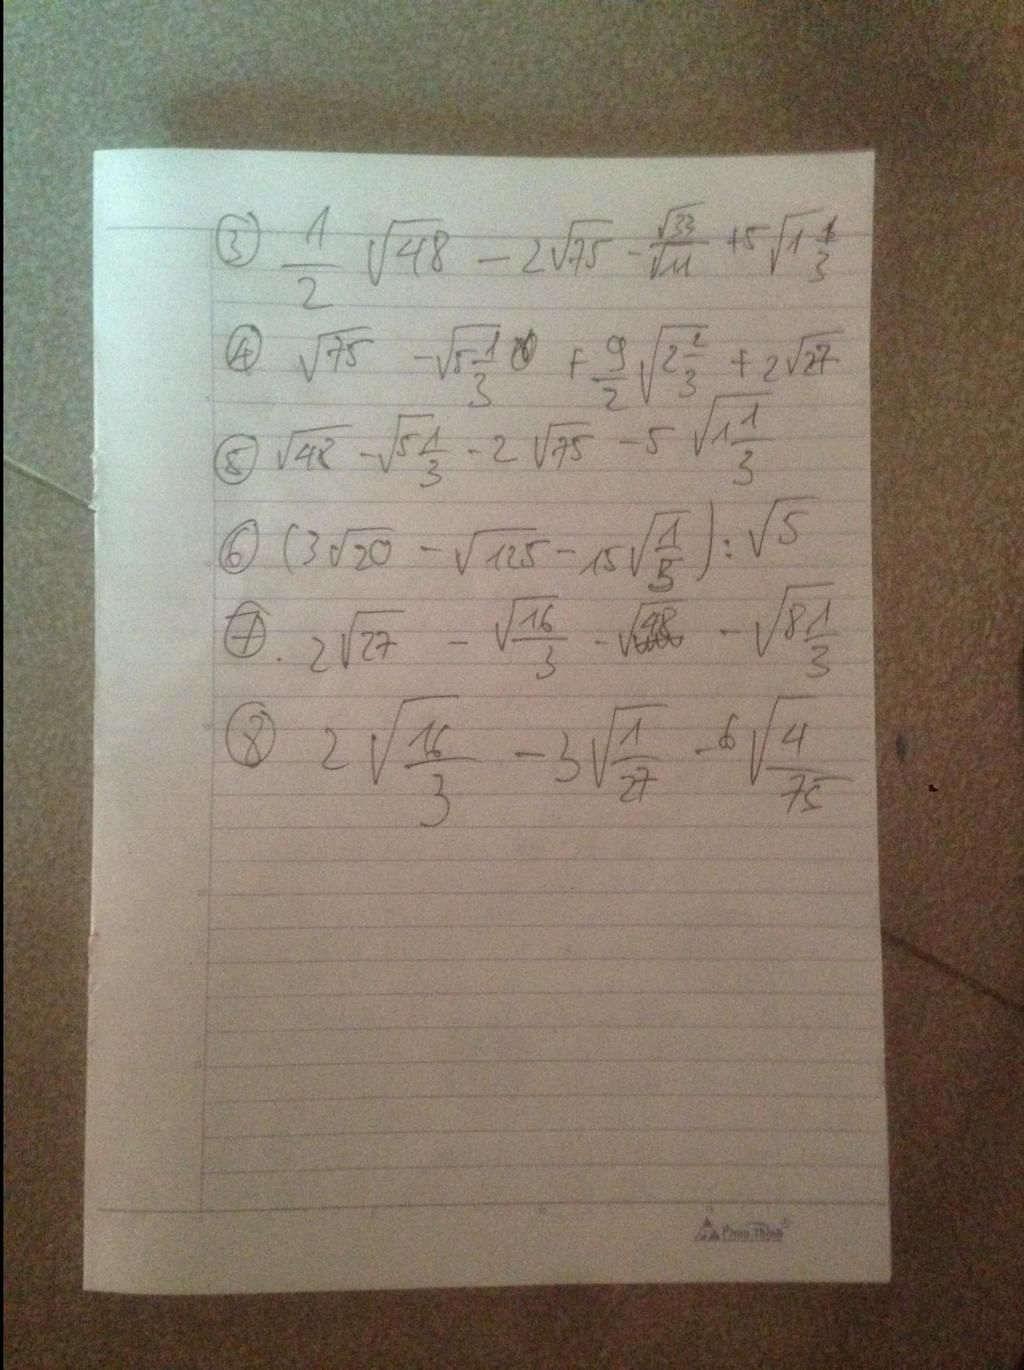 ③ 1/2 √48 − 2√75 − √33/√11 + 5√1 1/3
④ √75 − √5 1/3 + 9/2 √2 2/3 + 2√27
⑤ √48 − √5 1/3 − 2√75 − 5√1 1/3
⑥ (3√20 − √125 − 15√1/5) : √5
⑦. 2√27 − √16/3 − √48 − √8 1/3
⑧ 2√16/3 − 3√1/27 − 6√4/75